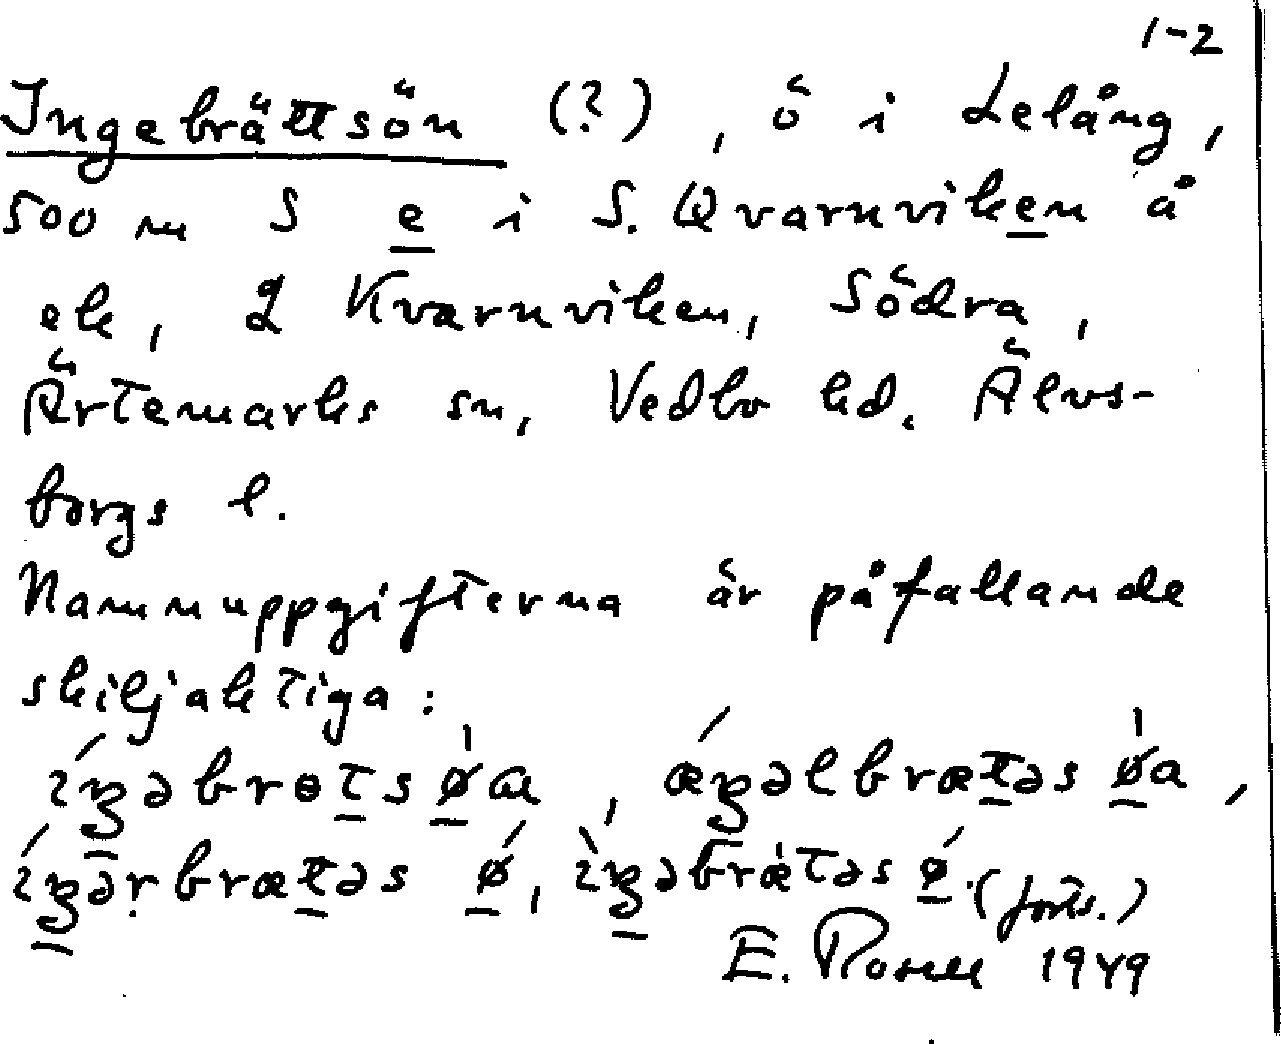 1-2
Ingebrättsön (?), ö i Lelång,
500 m S e i S. Qvarnviken å
ek, L Kvarnviken, Södra,
Ärtemarks sn, Vedbo hd. Älvs-
borgs l.
Namnuppgifterna är påfallande
skiljaktiga:
íŋəbrɵtsøa, ǽŋəlbrætəs øa,
íŋərbrætəs ǿ, ìŋəbrætəs ǿ. (forts.)
E. Rosell 1949